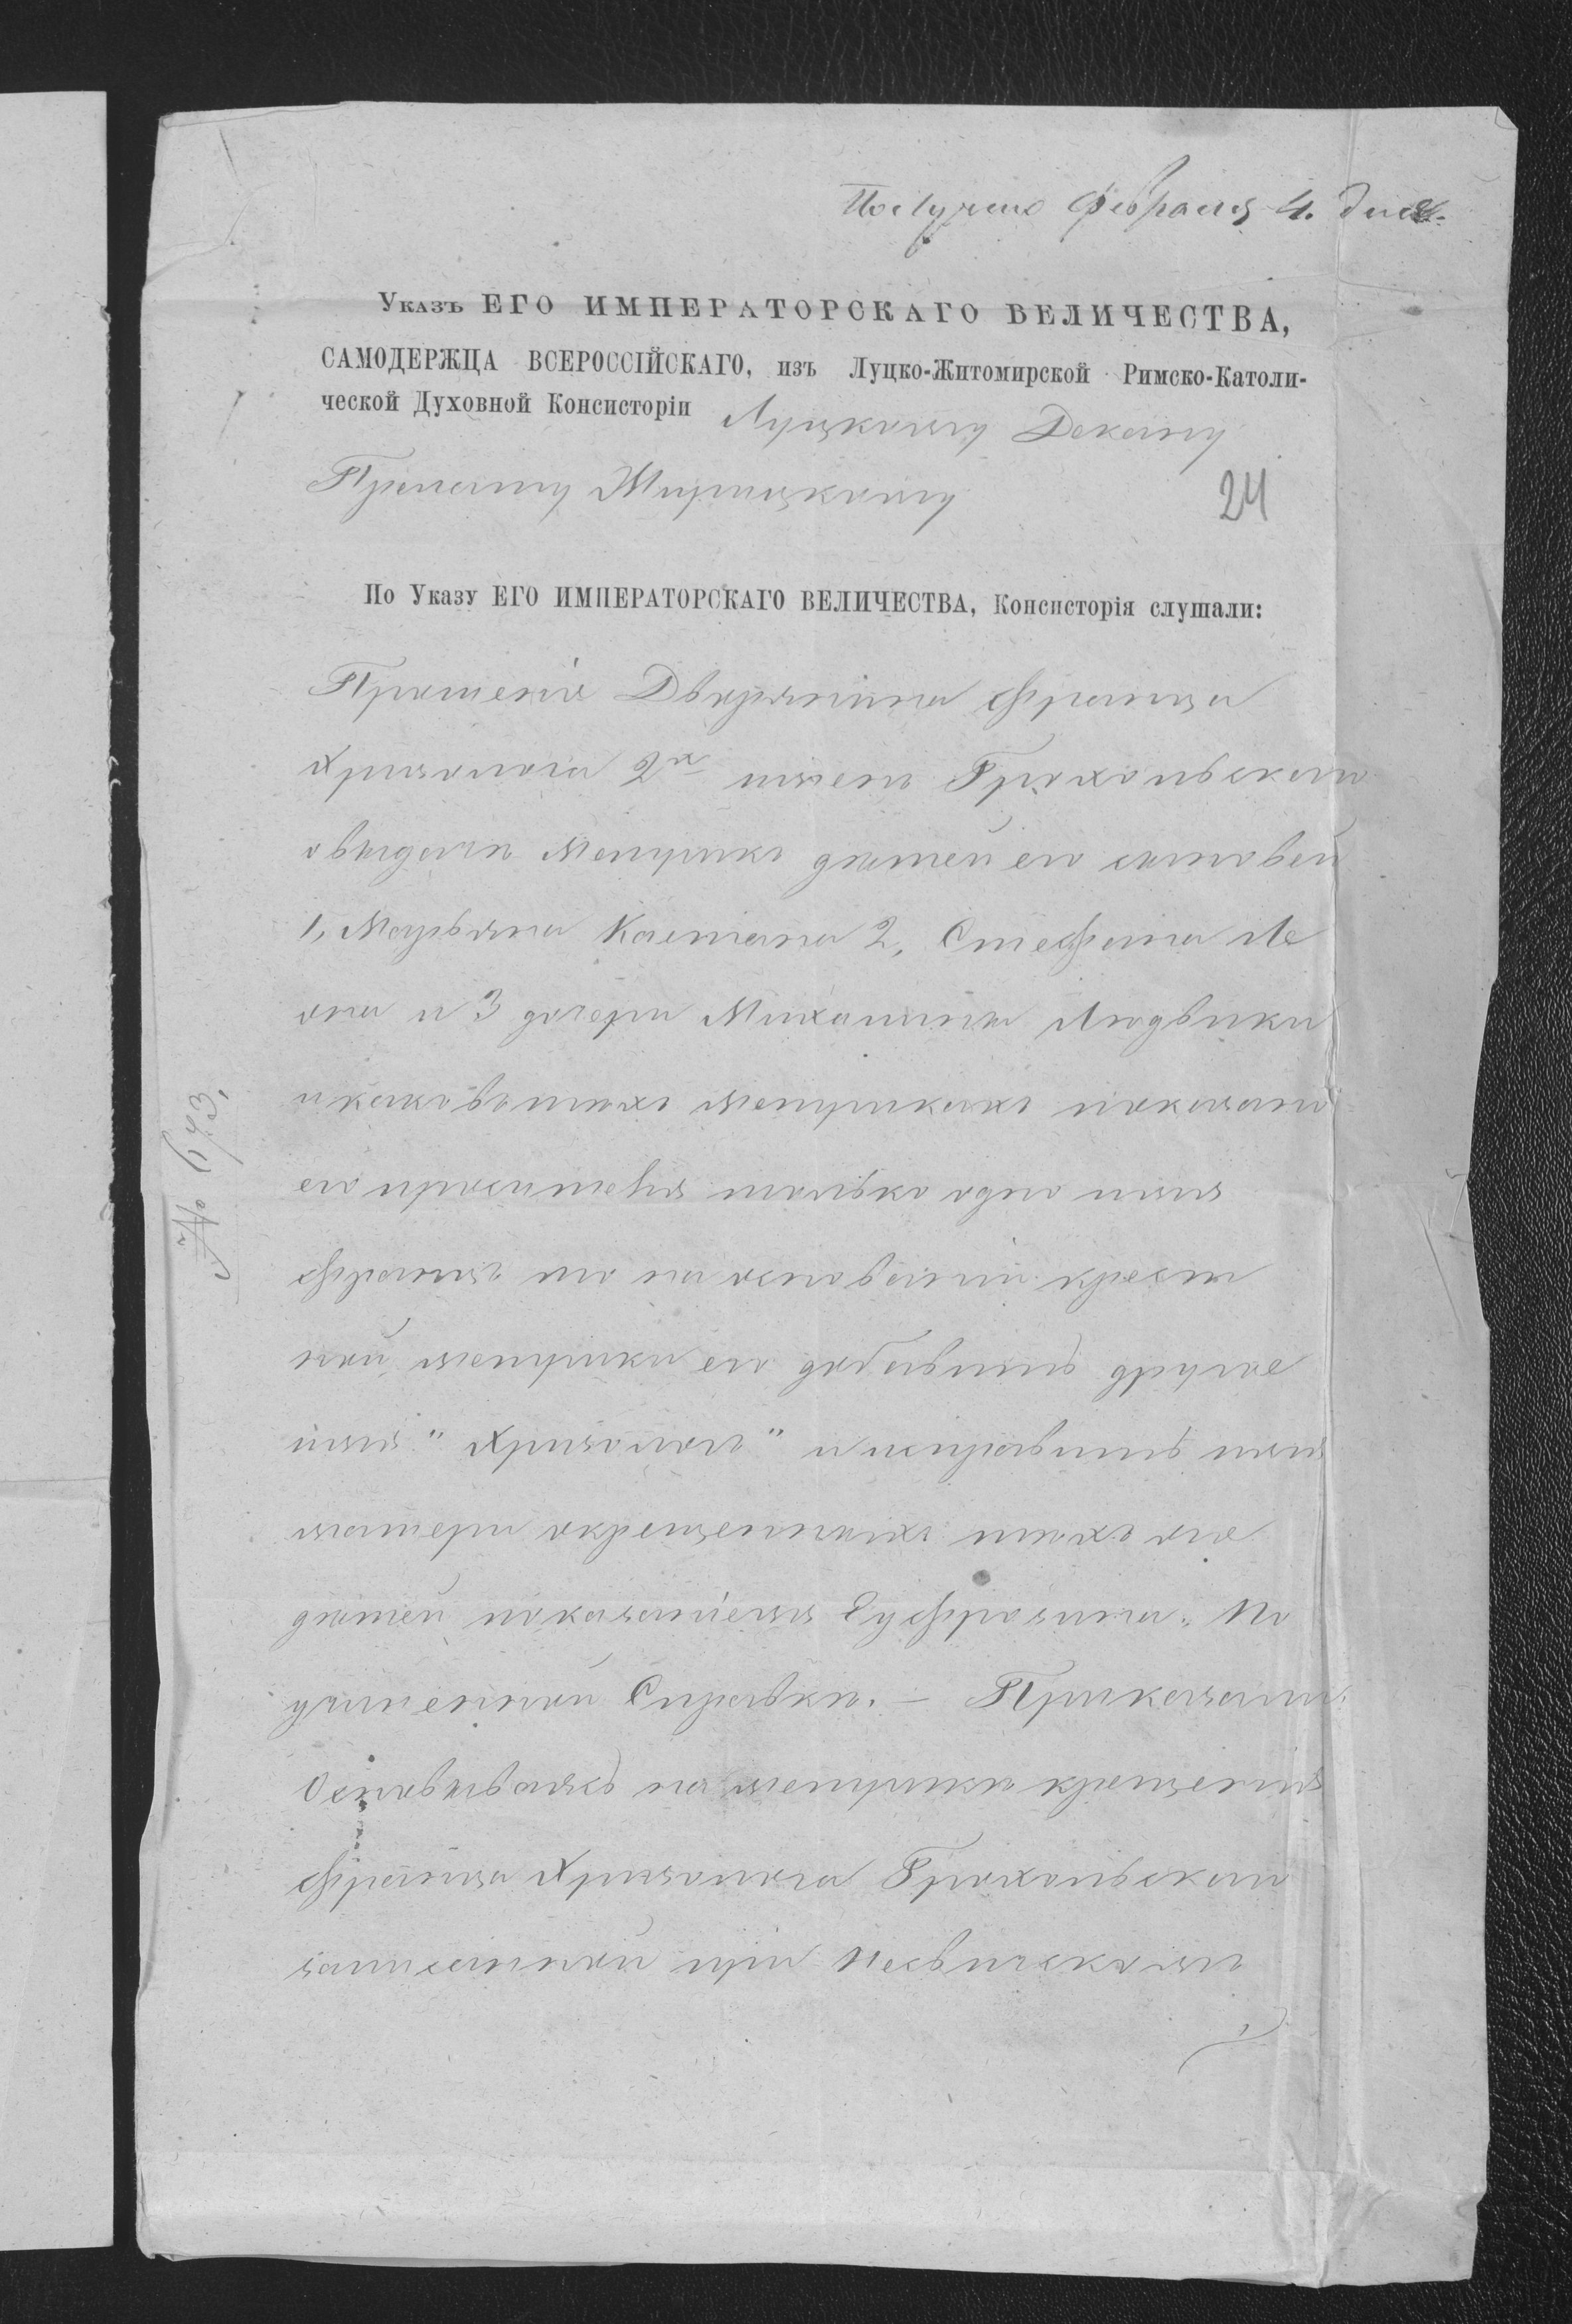 Получено Февраля 4. дня.
Указъ ЕГО ИМПЕРАТОРСКАГО ВЕЛИЧЕСТВА,
САМОДЕРЖЦА ВСЕРОССІЙСКАГО, изъ Луцко-Житомирской Римско-Католи-
ческой Духовной Консисторіи Луцкому Декану
Прелату Жирицкому
24
По Указу ЕГО ИМПЕРАТОРСКАГО ВЕЛИЧЕСТВА, Консисторія слушали:
Прошеніе Дворянина Франца
Хризолога 2хъ именъ Грохольскаго
о выдачѣ Метрикъ дѣтей его сыновей
1, Марьяна Каетана 2, Стефана Ле
она и 3 дочери Михалины Людвики
и каковыхъ метрикахъ показано
его просителя только одно имя
Францъ то на основаніи крест
ной метрики его добавить другое
имя "Хризологъ" и исправить имя
матери окрещенныхъ тѣхъ же
дѣтей показаніемъ Еуфрозина. По
учиненной Справкѣ. — Приказали:
Основываясь на метрикѣ крещенія
Франца Хризолога Грохольскаго
записанной при Несвичскомъ
№ 673,